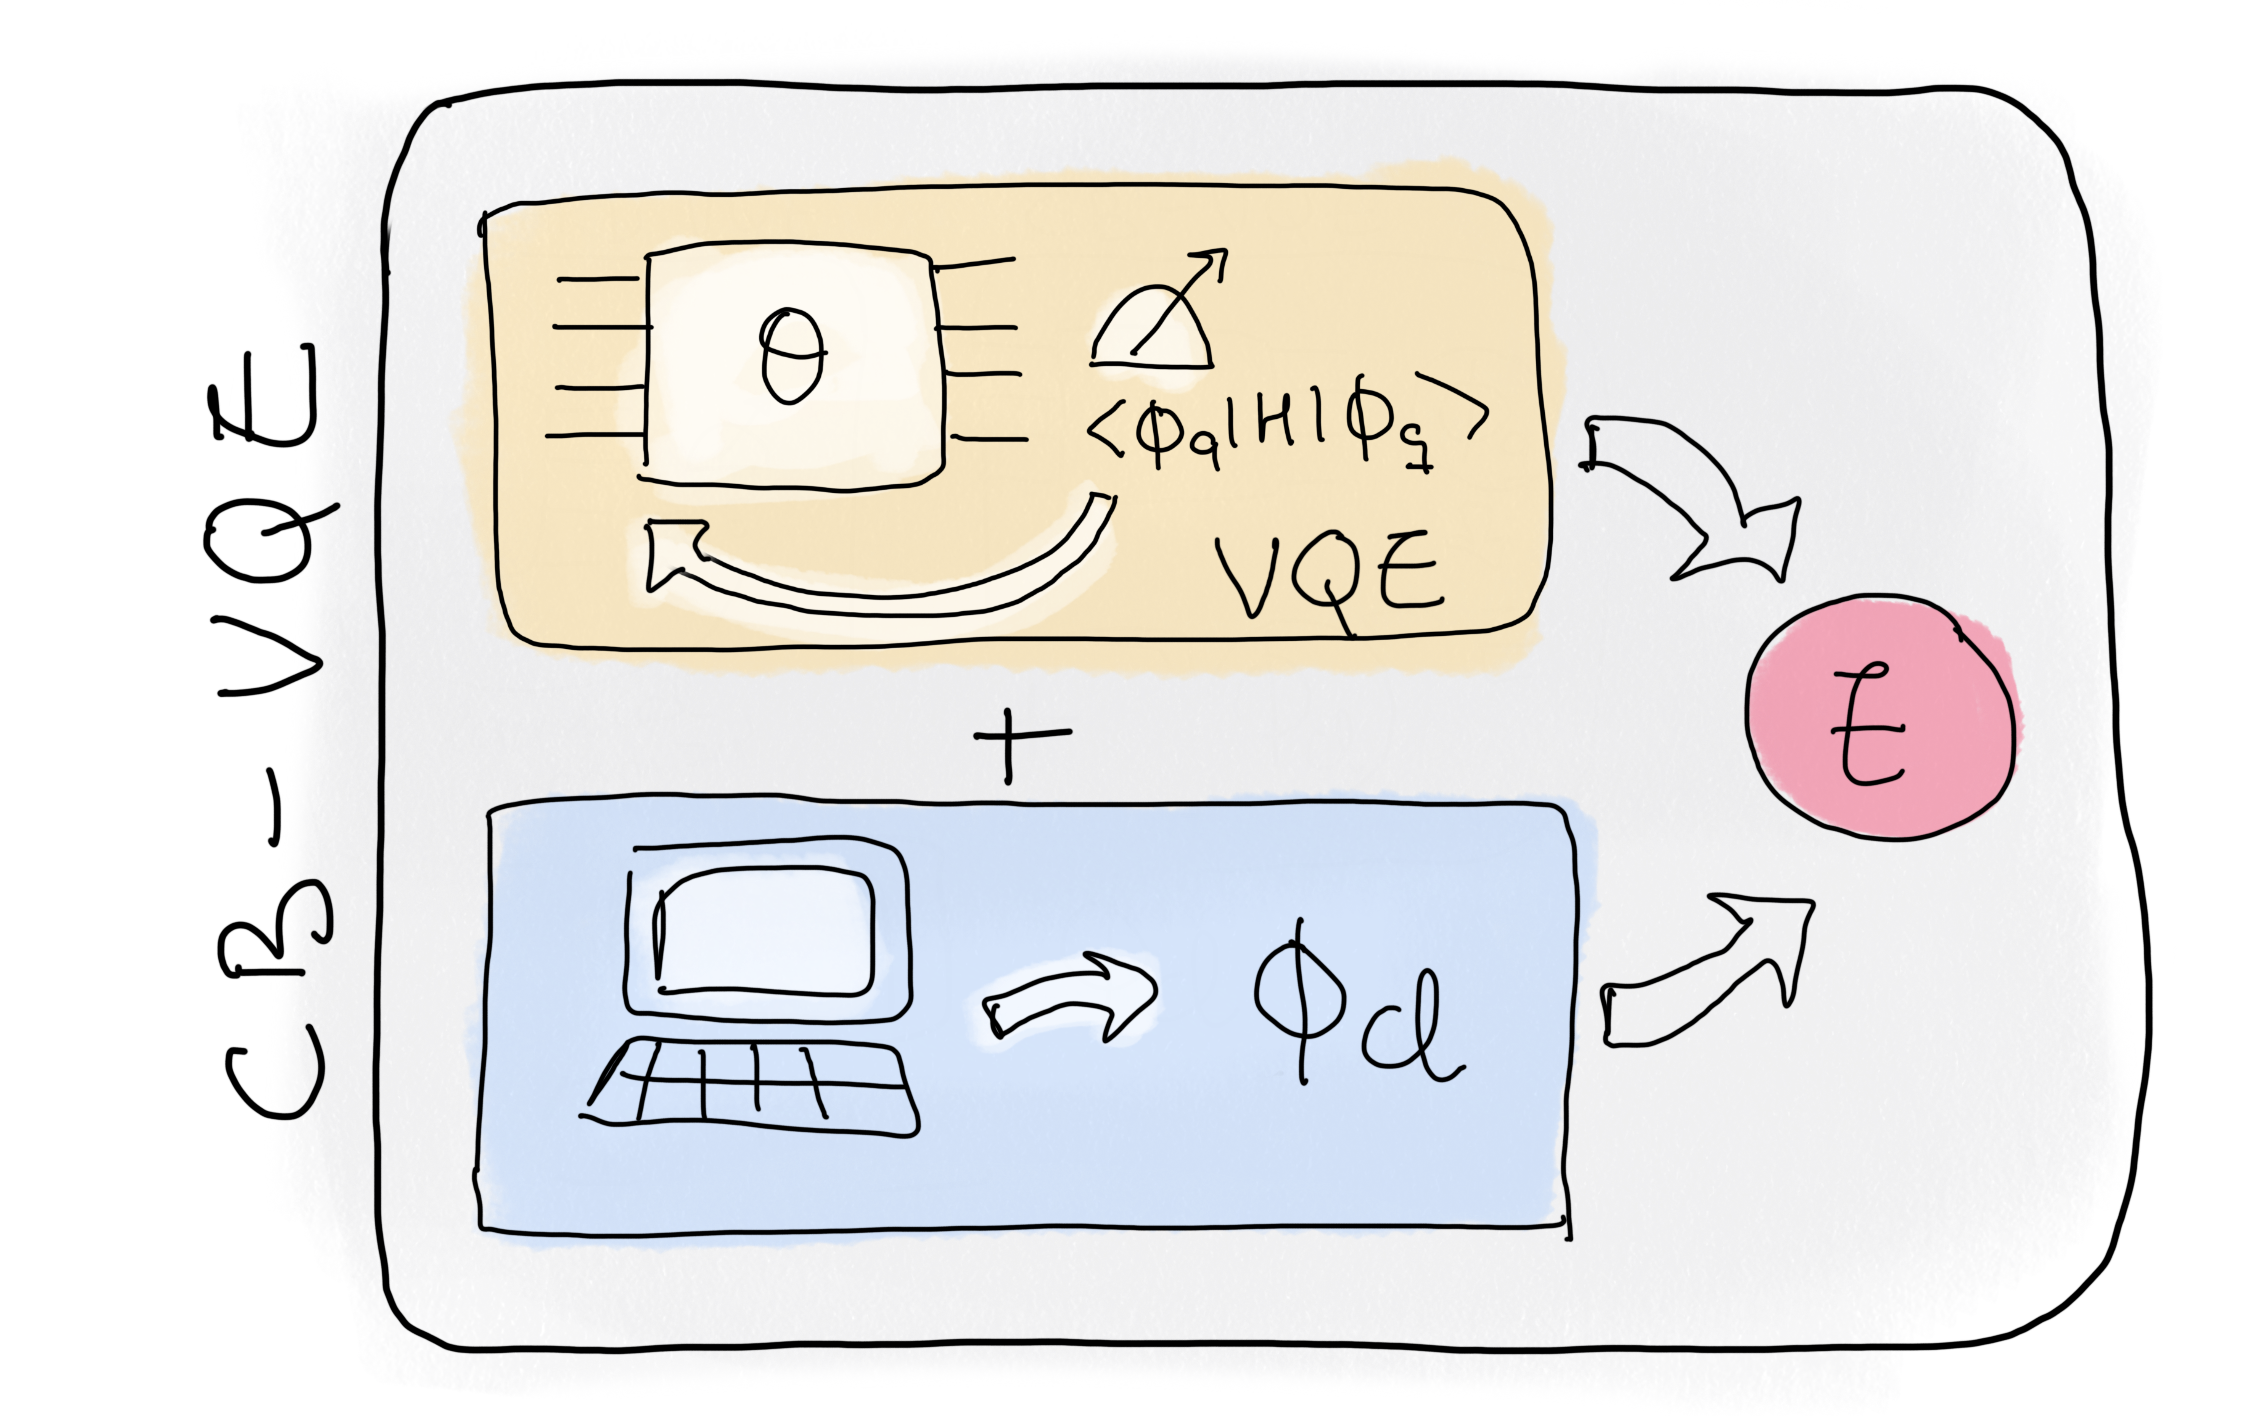 CB-VQE
θ
<ϕq|H|ϕq>
VQE
+
E
ϕcl